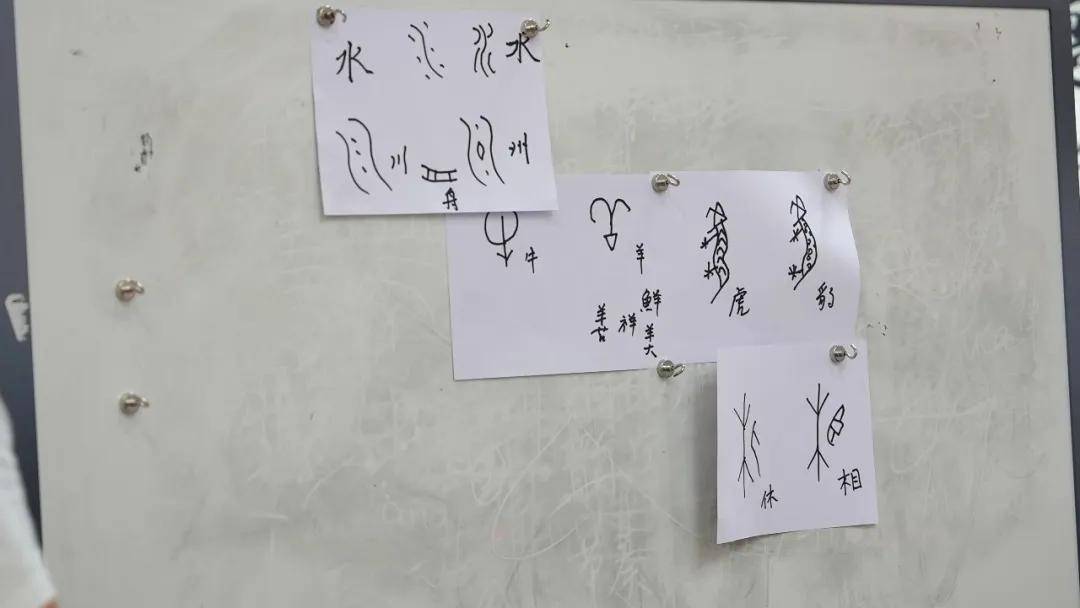 水 水
川 州
舟
牛 羊
善 祥 鮮
美
虎 豹
休 相